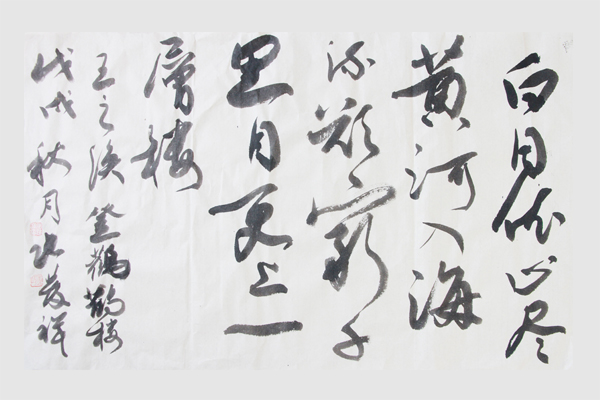 白日依山尽
黄河入海
流欲窮千
里目更上一
層楼
王之涣 登鸛鵲楼
戊戌秋月 發祥